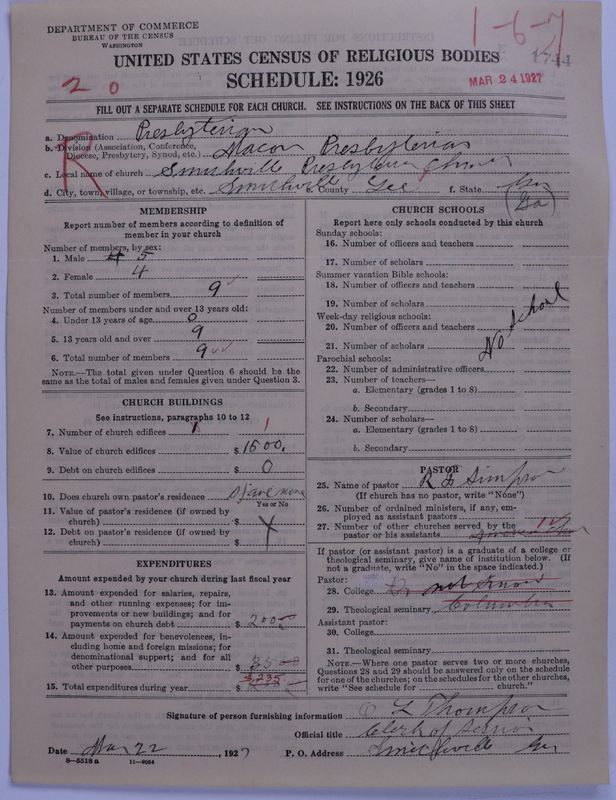 DEPARTMENT OF COMMERCE
BUREAU OF THE CENSUS
WASHINGTON
1-6-7
1744
UNITED STATES CENSUS OF RELIGIOUS BODIES
MAR 24 1927
SCHEDULE: 1926
2 0
FILL OUT A SEPARATE SCHEDULE FOR EACH CHURCH. SEE INSTRUCTIONS ON THE BACK OF THIS SHEET
R
a. Denomination Presbyterian
b. Division (Association, Conference, Diocese, Presbytery, Synod, etc.) Macon
c. Local name of church Smithville Presbyterian
d. City, town, village, or township, etc. Smithville e. County Lee f. State Ga
(Ga)
MEMBERSHIP
Report number of members according to definition of
member in your church
Number of members, by sex:
1. Male 5
2. Female 4
3. Total number of members 9
Number of members under and over 13 years old:
4. Under 13 years of age 0
5. 13 years old and over 9
6. Total number of members 9
NOTE.—The total given under Question 6 should be
same as the total of males and females given under Question 3.
CHURCH BUILDINGS
See instructions, paragraphs 10 to 12
7. Number of church edifices 1 1
8. Value of church edifices $ 1500.
9. Debt on church edifices $ 0
10. Does church own pastor's residence
Yes or No
11. Value of pastor's residence (if owned by
church) $
12. Debt on pastor's residence (if owned by
church) $
EXPENDITURES
Amount expended by your church during last fiscal year
13. Amount expended for salaries, repairs,
and other running expenses; for im-
provements or new buildings; and for
payments on church debt $
14. Amount expended for benevolences, in-
cluding home and foreign missions; for
denominational support; and for all
other purposes $
$235
15. Total expenditures during year $
CHURCH SCHOOLS
Report here only schools conducted by this church
Sunday schools:
16. Number of officers and teachers
17. Number of scholars
Summer vacation Bible schools:
18. Number of officers and teachers
19. Number of scholars
Week-day religious schools:
20. Number of officers and teachers
No School
21. Number of scholars
Parochial schools:
22. Number of administrative officers
23. Number of teachers—
a. Elementary (grades 1 to 8)
b. Secondary
24. Number of scholars—
a. Elementary (grades 1 to 8)
b. Secondary
PASTOR
25. Name of pastor Simpson
(If church has no pastor, write "None")
26. Number of ordained ministers, if any, em-
ployed as assistant pastors
27. Number of other churches served by the
pastor or his assistants
If pastor (or assistant pastor) is a graduate of a college or
theological seminary, give name of institution below. (If
not a graduate, write "No" in the space indicated.)
Pastor:
28. College Do not know
29. Theological seminary Columbia
Assistant pastor:
30. College
31. Theological seminary
NOTE.—Where one pastor serves two or more churches,
Questions 28 and 29 should be answered only on the schedule
for one of the churches; on the schedules for the other churches,
write "See schedule for church."
Signature of person furnishing information L Thompson
Official title Clerk of Session
Date Mar 22, 1927 P. O. Address Smithville Ga
8—5518 a 11—9034